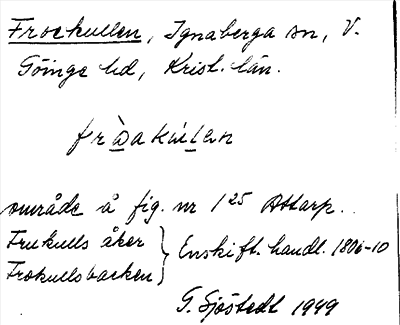 Frockullen, Ignaberga sn, V.
Göinge hd, Krist. län.
område å fig. nr 1²⁵ Attarp.
Frukulls åker } Enskift. handl. 1806-10
Frokullsbacken
G. Sjöstedt 1949